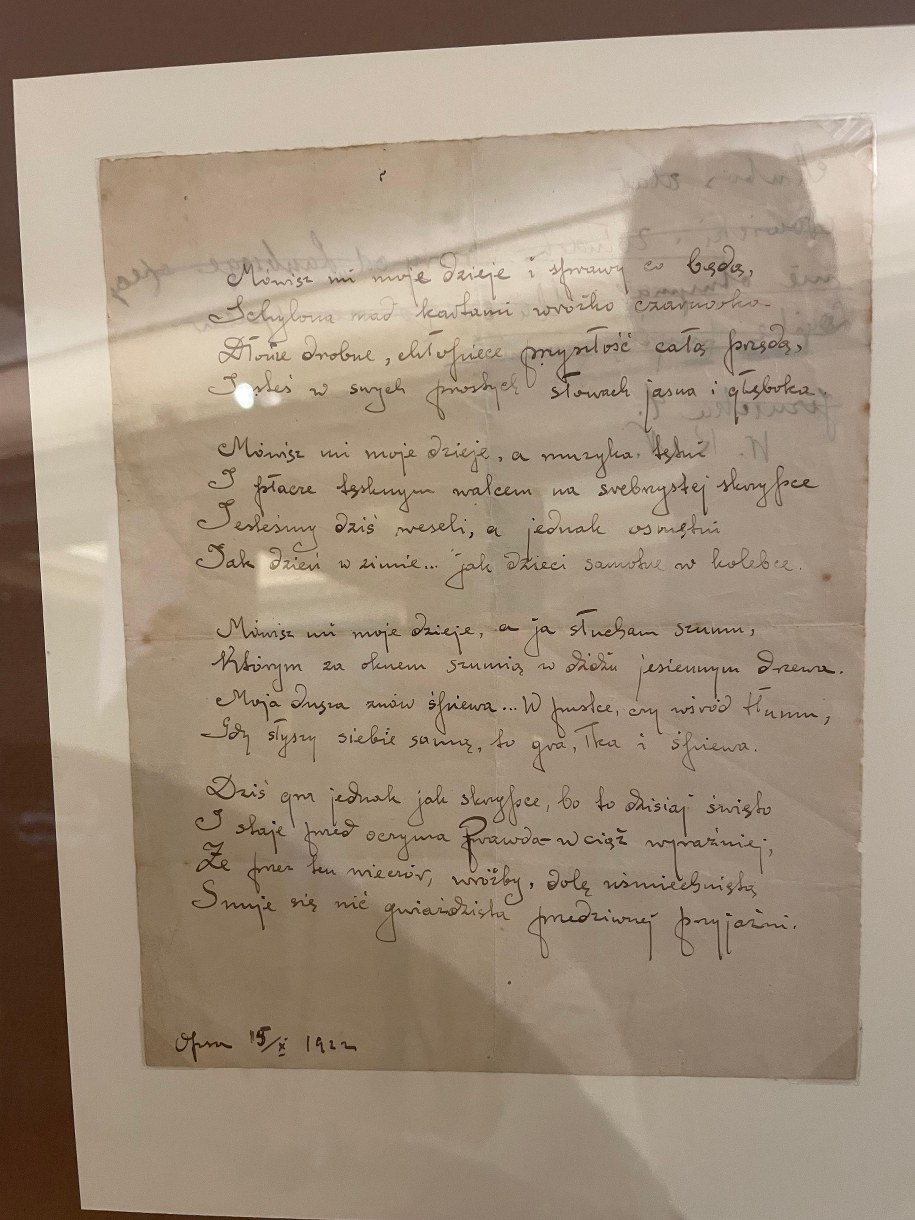 Mówisz mi moje dzieje i sprawy co będą,
Schylona nad kartami wróżko czarnooka
Dłonie drobne, chłopięce przyszłość całą przędą,
Jesteś w swych prostych słowach jasna i głęboka.
Mówisz mi moje dzieje, a muzyka tętni
I płacze tęsknym walcem na srebrzystej skrzypce
Jesteśmy dziś weseli, a jednak osmętni
Jak dzień w zimie... jak dzieci samotne w kolebce.
Mówisz mi moje dzieje, a ja słucham szumu,
Którym za oknem szumią w dżdżu jesiennym drzewa.
Moja dusza znów śpiewa... W pustce, czy wśród tłumu,
Gdy słyszy siebie samą, to gra, łka i śpiewa.
Dziś gra jednak jak skrzypce, bo to dzisiaj święto
I staje przed oczyma Prawda wciąż wyraźniej,
Że przez ten wieczór, wróżby, dolę uśmiechniętą
Snuje się nić gwiaździsta przedziwnej przyjaźni.
15/X 1922